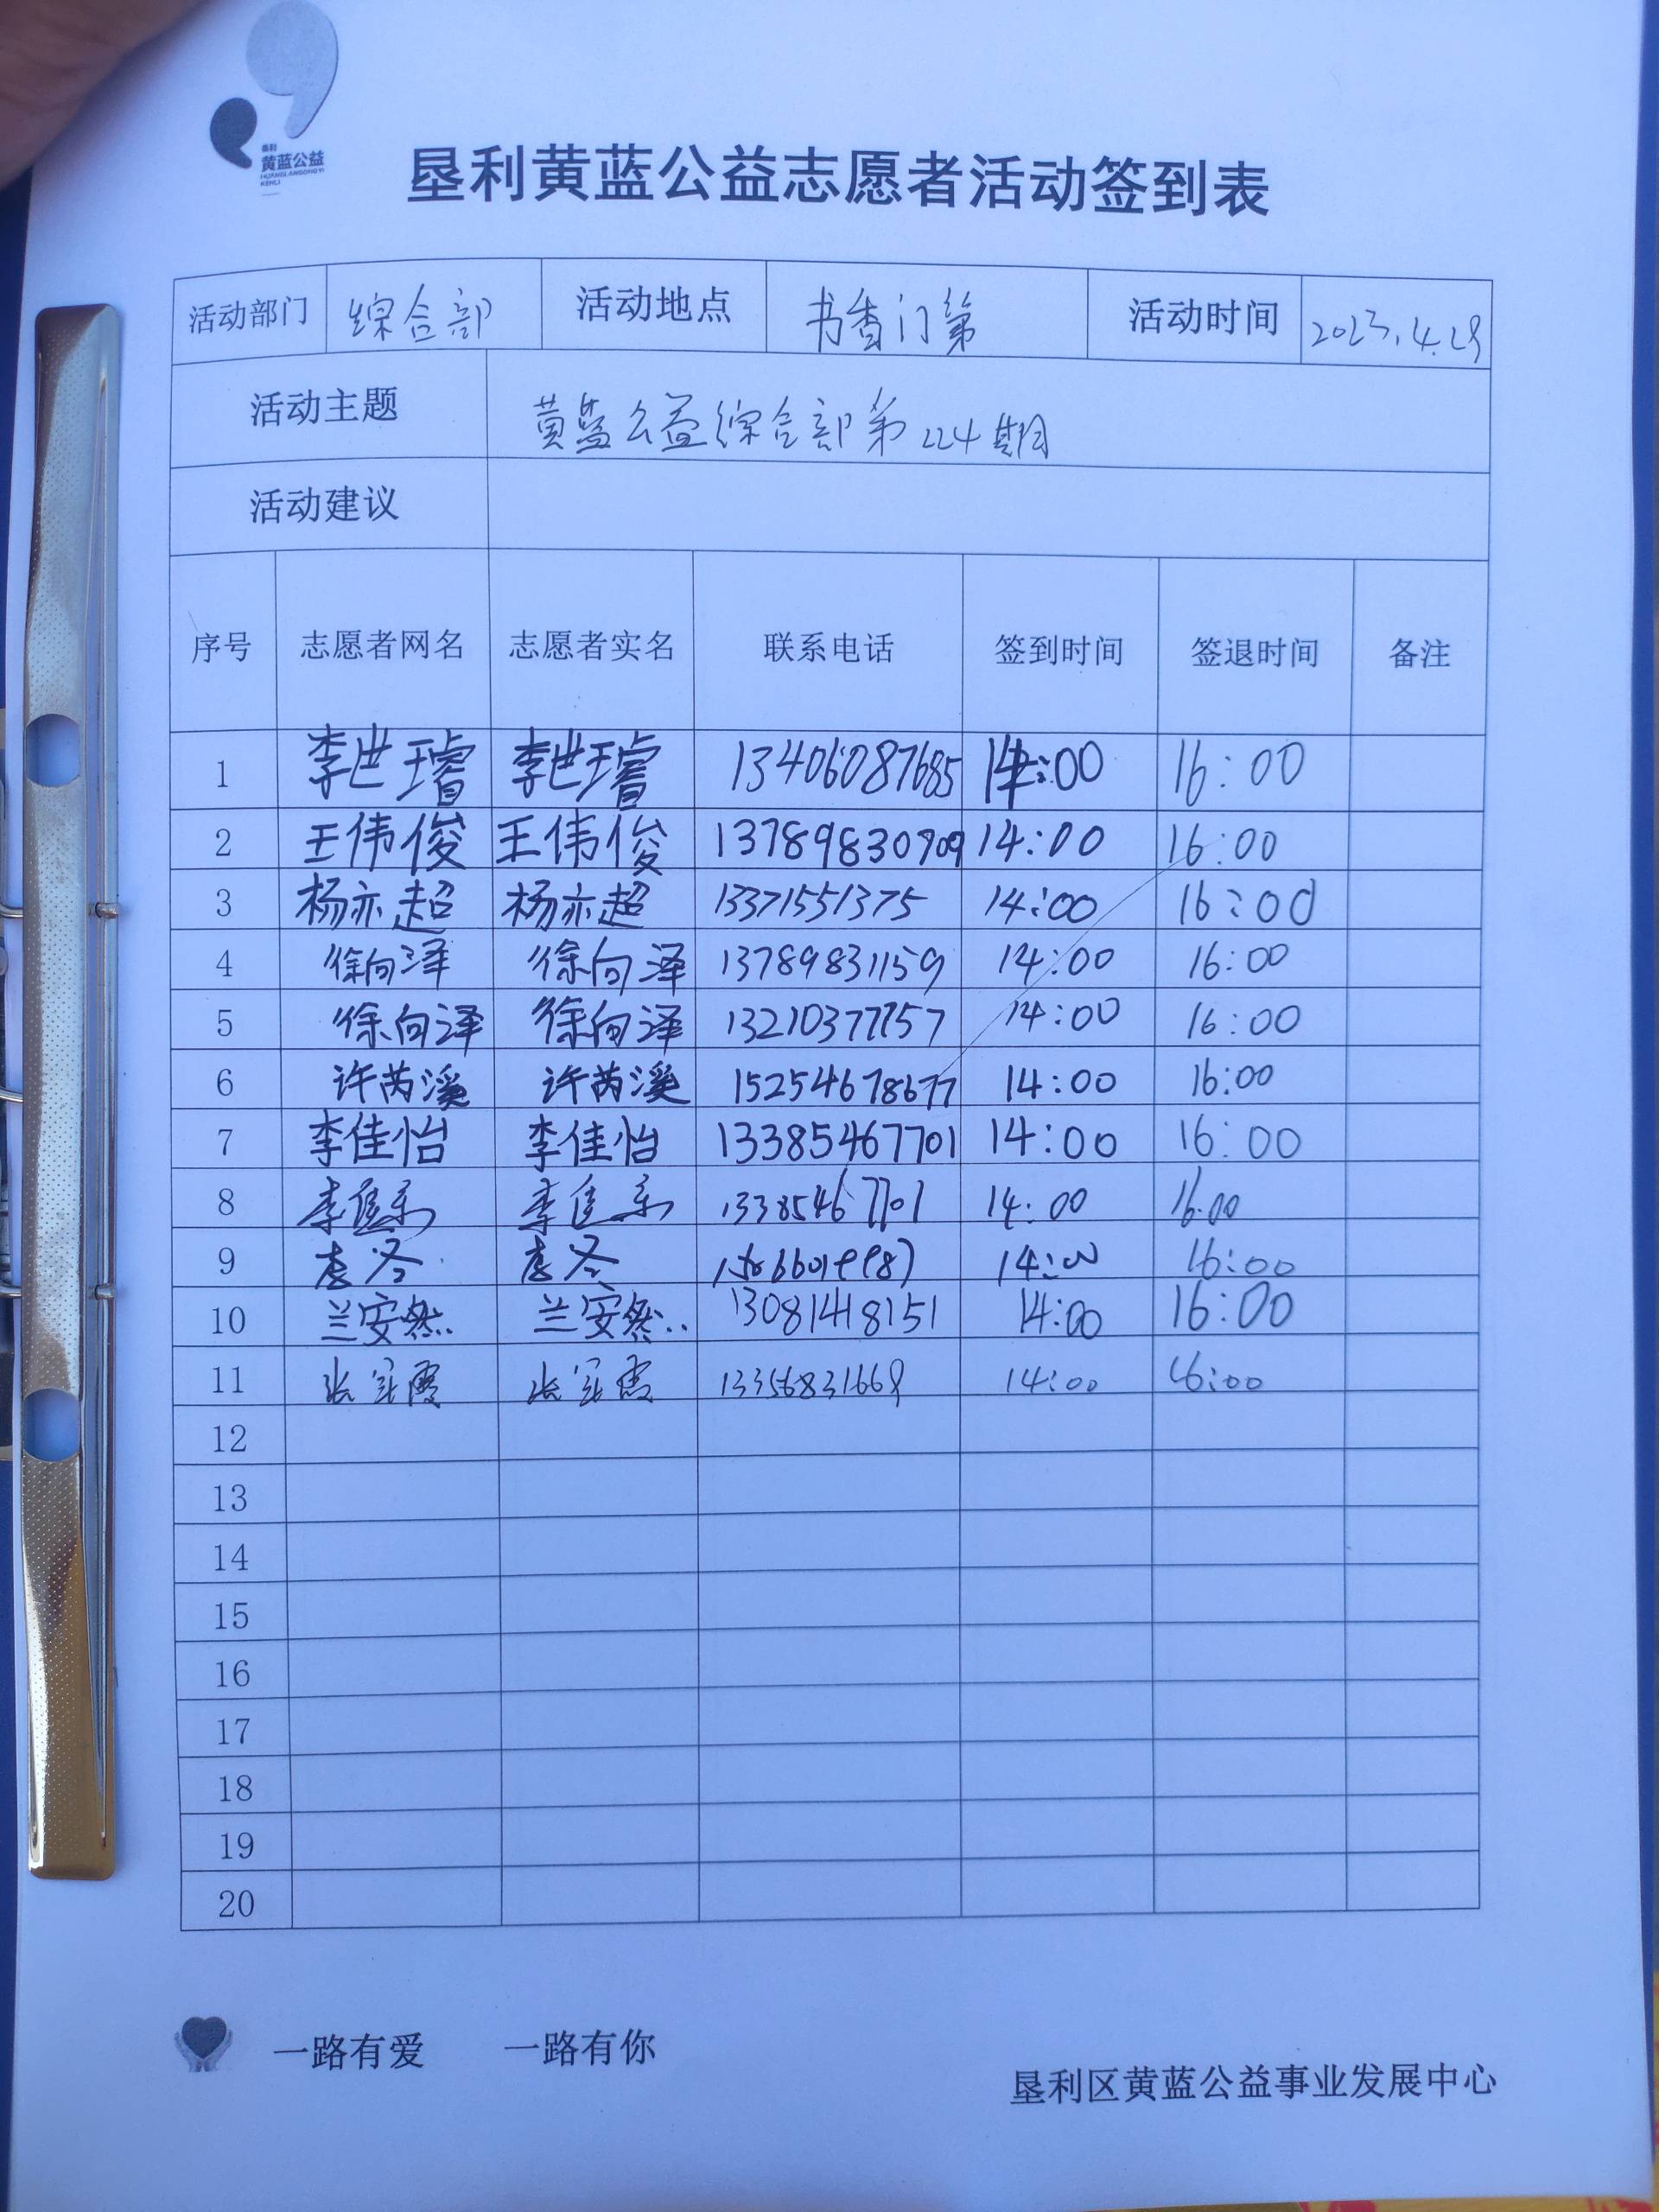 垦利
黄蓝公益
HUANGLANGONGYI
KENLI
垦利黄蓝公益志愿者活动签到表
活动部门 综合部 活动地点 书香门第 活动时间 2023.4.29
活动主题 黄蓝公益综合部第224期
活动建议
序号 志愿者网名 志愿者实名 联系电话 签到时间 签退时间 备注
1 李世璿 李世璿 13406087685 14:00 16:00
2 王伟俊 王伟俊 13789830909 14:00 16:00
3 杨亦超 杨亦超 13371551375 14:00 16:00
4 徐向泽 徐向泽 13789831159 14:00 16:00
5 徐向泽 徐向泽 13210377757 14:00 16:00
6 许芮溪 许芮溪 15254678677 14:00 16:00
7 李佳怡 李佳怡 13385467701 14:00 16:00
8 李佳 李佳 13385467701 14:00 16:00
9 李冬 李冬 14:00 16:00
10 兰安然.. 兰安然.. 13081418151 14:00 16:00
11 张 霞 张 霞 13356831669 14:00 16:00
12
13
14
15
16
17
18
19
20
一路有爱 一路有你
垦利区黄蓝公益事业发展中心